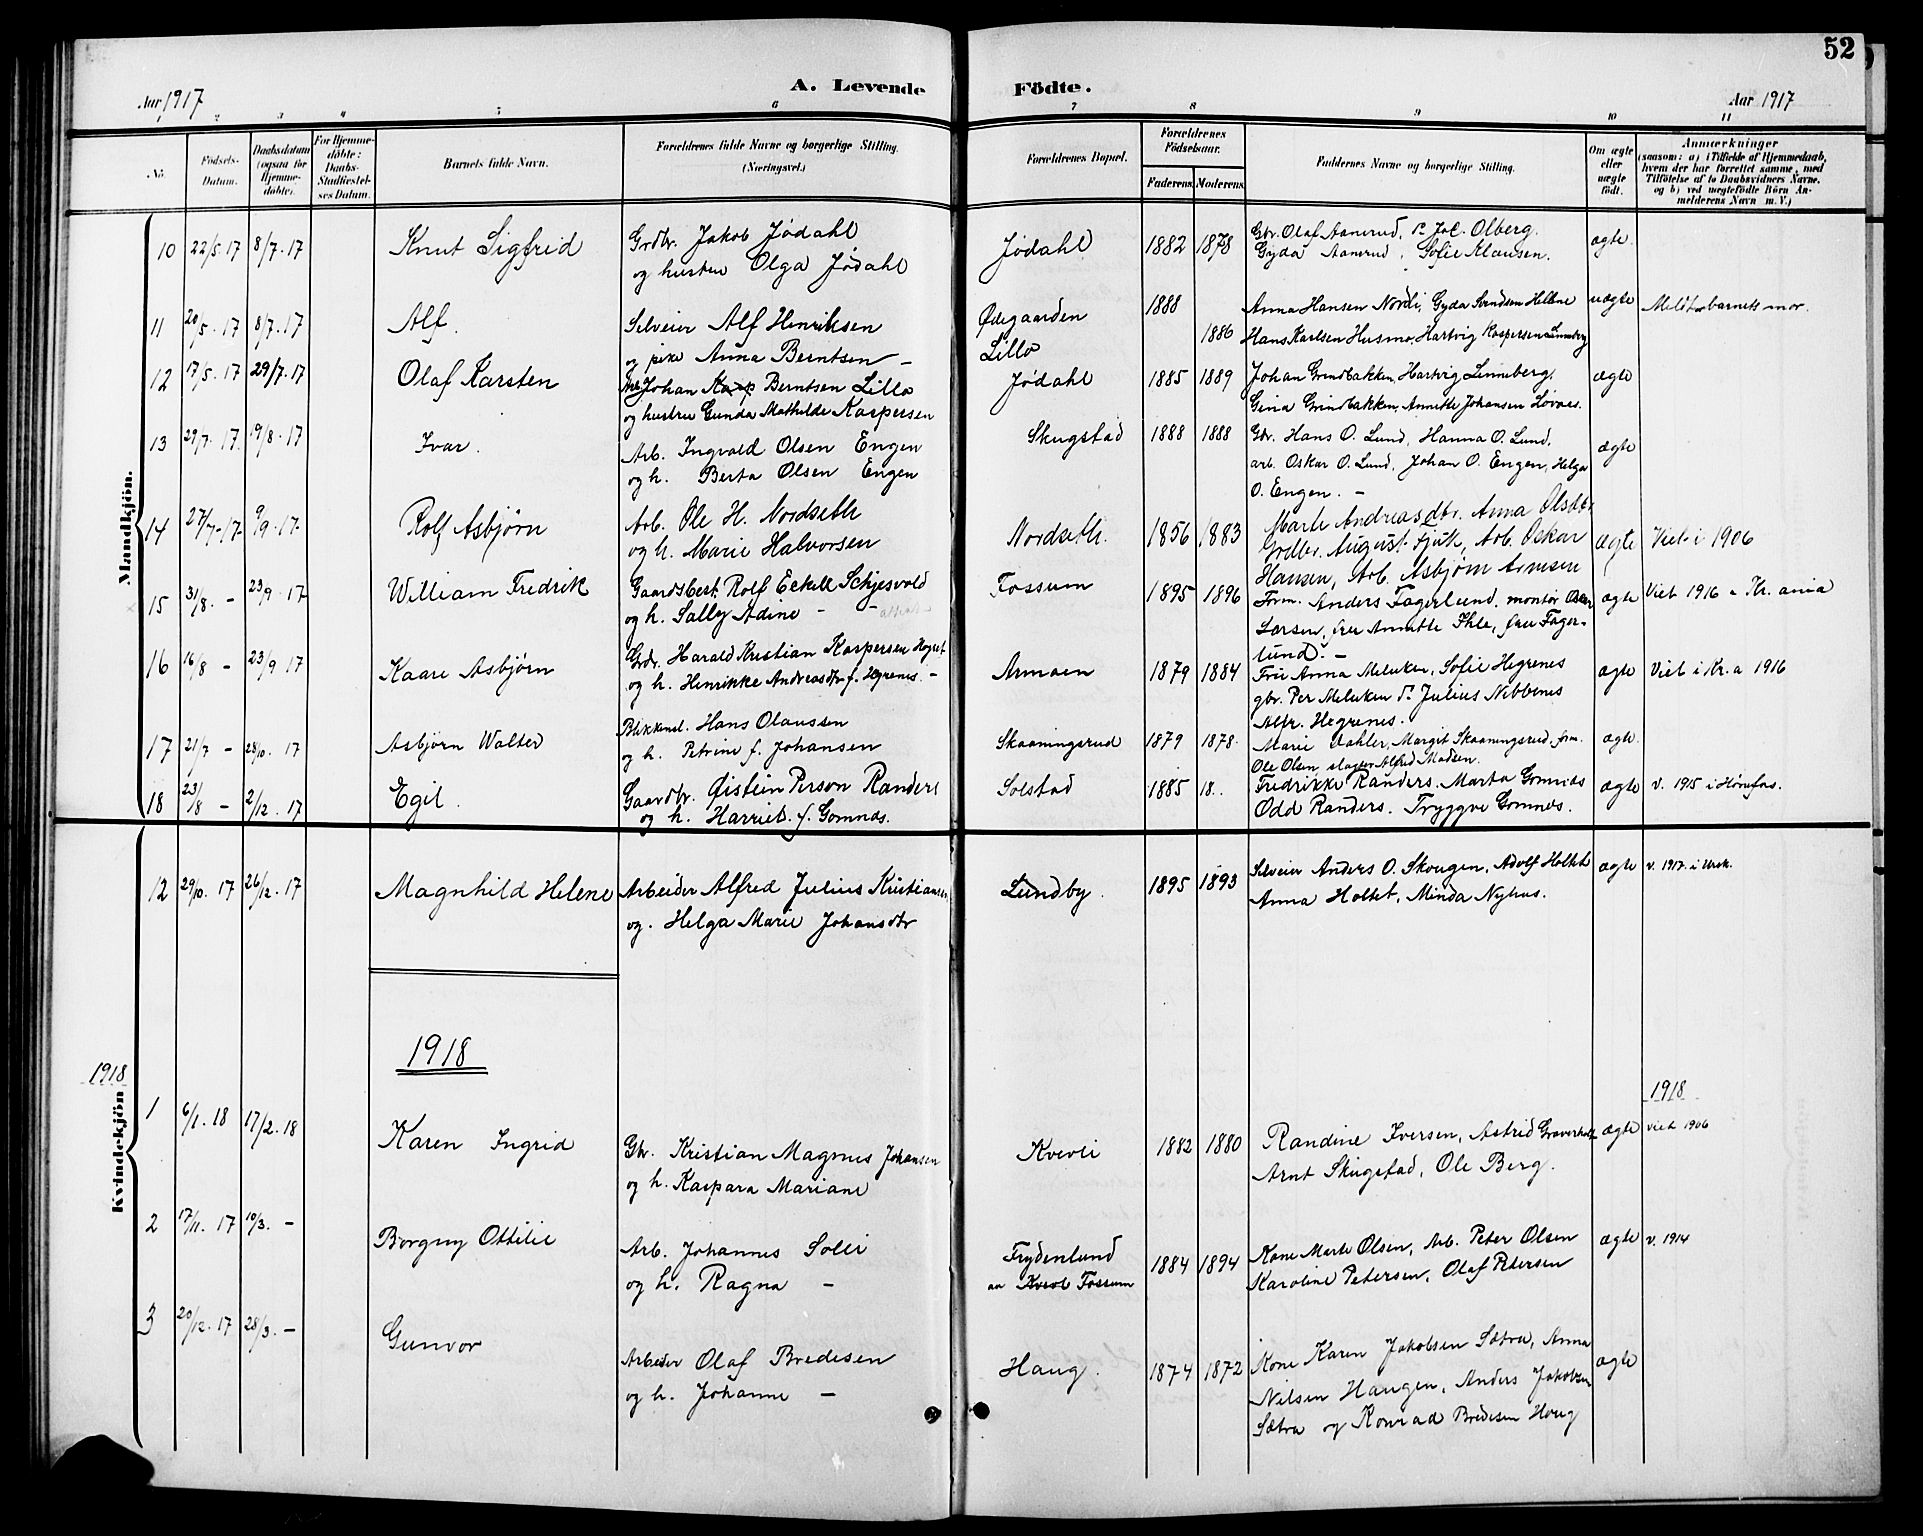 52
Aar 1917
A. Levende
Födte.
Aar 1917
2 3 4 5 6 7 8 9 10 11
No.
Födsels-Datum.
Daabsdatum (ogsaa for Hjemme-döbte).
For Hjemme-döbte: Daabs-Stadfæstel-ses Datum.
Barnets fulde Navn.
Forældrenes fulde Navne og borgerlige Stilling.
(Næringsvei.)
Forældrenes Bopæl.
Forældrenes Födselsaar.
Faderens. Moderens.
Faddernes Navne og borgerlige Stilling.
Om ægte eller uægte födt.
Anmærkninger
(saasom: a) i Tilfælde af Hjemmedaab,
hvem der har forrettet samme, med
Tilföielse af to Daabsvidners Navne,
og b) ved uægtefödte Börn An-
melderens Navn m. V.)
Mandkjön.
10 22/5 17 8/7. 17 Knut Sigfrid
Grdbr. Jakob Jødahl
og hustru Olga Jødahl
Jødahl 1882 1878
Gbr. Olaf Aamrud, Joh. Olberg.
Gyda Aamrud, Sofie Klausen.
ægte.
11 20/5. 17 8/7. 17 Alf.
Selveier Alf Henriksen
og pike Anna Berntsen –
Ødegaarden
Lillo
1888
1886
Anna Hansen Nordli, Gyda Svendsen Hellene
Hans Karlsen Husmo, Hartvig Kaspersen Linneberg
uægte Meldt barnets mor.
12 17/5. 17 29/7. 17 Olaf Karsten
Arb. Johan Kasp Berntsen Lillo
og hustru Gunda Mathilde Kaspersen
Jødahl 1885 1889
Johan Grindbakken, Hartvig Linneberg,
Gina Grindbakken, Annette Johansen Løvaas.
ægte
13 29/7. 17. 19/8. 17 Ivar.
Arb. Ingvald Olsen Engen
og h. Berta Olsen Engen
Skugstad 1888 1888
Gbr. Hans O. Lund, Hanna O. Lund,
arb. Oskar O. Lund, Johan O. Engen, Helga
O. Engen. –
ægte
14 27/7 – 17. 9/9. 17. Rolf Asbjørn
Arb. Ole H. Nordseth
og h. Marie Halvorsen
Nordseth. 1856 1883
Marte Andreasdtr. Anna Olsdtr.
Grdbr. August Fjuk, Arb. Oskar
Hansen, Arb. Asbjørn Arnesen
ægte Viet i 1906
15 31/8. – 23/9. 17 William Fredrik
Gaardsbest. Rolf Eckell Schjesvold
og h. Sally Adine – –
Fossum 1895 1896
Form. Anders Fagerlund, montør Oskar
Larsen, fru Annette Ihle, fru Fager-
lund. –
ægte Viet 1916 i Kr.ania
16 16/8 – 23/9 17 Kaare Asbjørn
Grdr. Harald Kristian Kaspersen
og h. Henrikke Andreasdtr f. Hegrenes. –
Armoen 1879 1884
Fru Anna Meluken, Sofie Hegrenes
gbr. Per Meluken Julius Nibbenes
Alfr. Hegrenes.
ægte Viet i Kr.a 1916
17 21/7 – 28/10. 17 Asbjørn Walter
Blikkensl. Hans Olaussen
og h. Petrine f. Johansen
Skaaningsrud 1879 1878.
Marie Dahler, Margit Skaaningsrud, form.
Ole Olsen, slagter Alfred Madsen.
ægte.
18 23/8 – 2/12. 17 Egil.
Gaardbr. Øistein Person Randers
og h. Harriet. f. Gomnæs.
Solstad 1885 18..
Fredrikke Randers. Marta Gomnæs
Odd Randers. Tryggve Gomnæs.
ægte v. 1915 i Hønefos.
12 29/10. 17 26/12. 17 Magnhild Helene
Arbeider Alfred Julius Kristiansen
og. Helga Marie Johansdtr
Lundby. 1895 1893
Selveier Anders O. Skougen, Adolf Holtet
Anna Holtet, Minda Nyhus.
ægte v. 1917. i Ursk.
Kvindekjön
1918
1918
1918
1 6/1. 18 17/2. 18 Karen Ingrid
Gbr. Kristian Magnus Johansen
og h. Kaspara Mariane
Kvevli 1882 1880
Randine Iversen, Astrid Graverholt
Arnt Skugstad, Ole Berg.
ægte viet 1906
2 17/11. 17 10/3. – Borgny Ottilie
Arb. Johannes Solli
og h. Ragna –
Frydenlund
Fossum
1884 1894
Kone Marte Olsen, Arb. Peter Olsen
Karoline Petersen, Olaf Petersen
ægte v. 1914
3 20/12. 17 28/3. – Gunvor
Arbeider Olaf Bredesen
og h. Johanne –
Haug. 1874 1872
Kone Karen Jakobsen Sætra, Anna
Nilsen Haugen, Anders Jakobsen
Sætra og Konrad Bredesen Haug
ægte